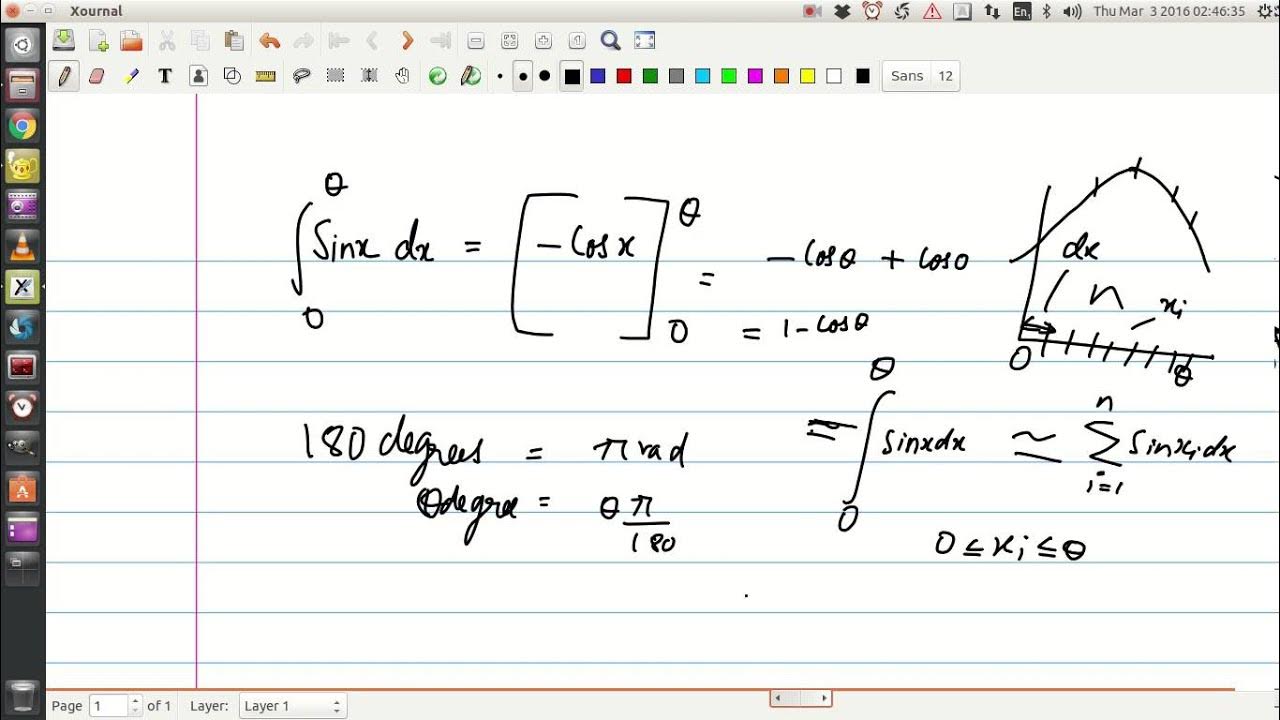 Xournal
En₁
Thu Mar 3 2016 02:46:35
T
Sans 12
θ
∫ Sinx dx = [ -Cosx ] θ = -Cosθ + Cos0
0
0 = 1 - Cosθ
dx
n
xi
0
θ
180 degrees = π rad
θdegree = θ π
180
θ
= ∫ Sinxdx ≃ n Σ i=1 Sinxi dx
0
0 ≤ xi ≤ θ
Page 1 of 1 Layer: Layer 1